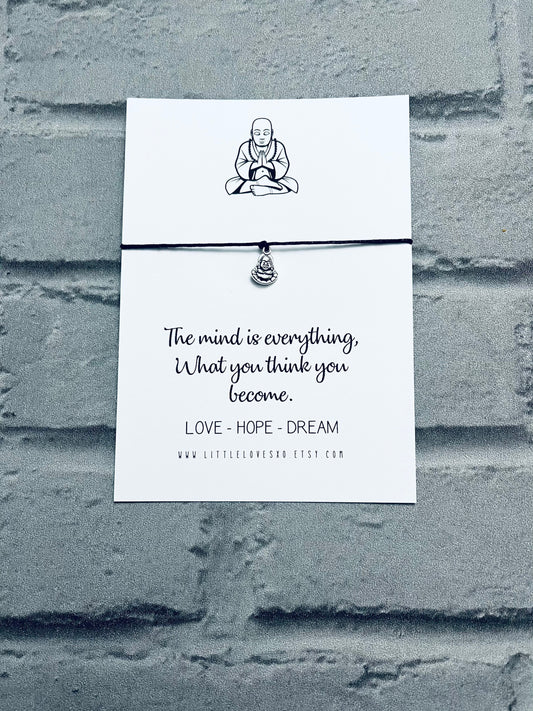 The mind is everything,
What you think you
become.
LOVE - HOPE - DREAM
WWW.LITTLELOVESXO.ETSY.COM